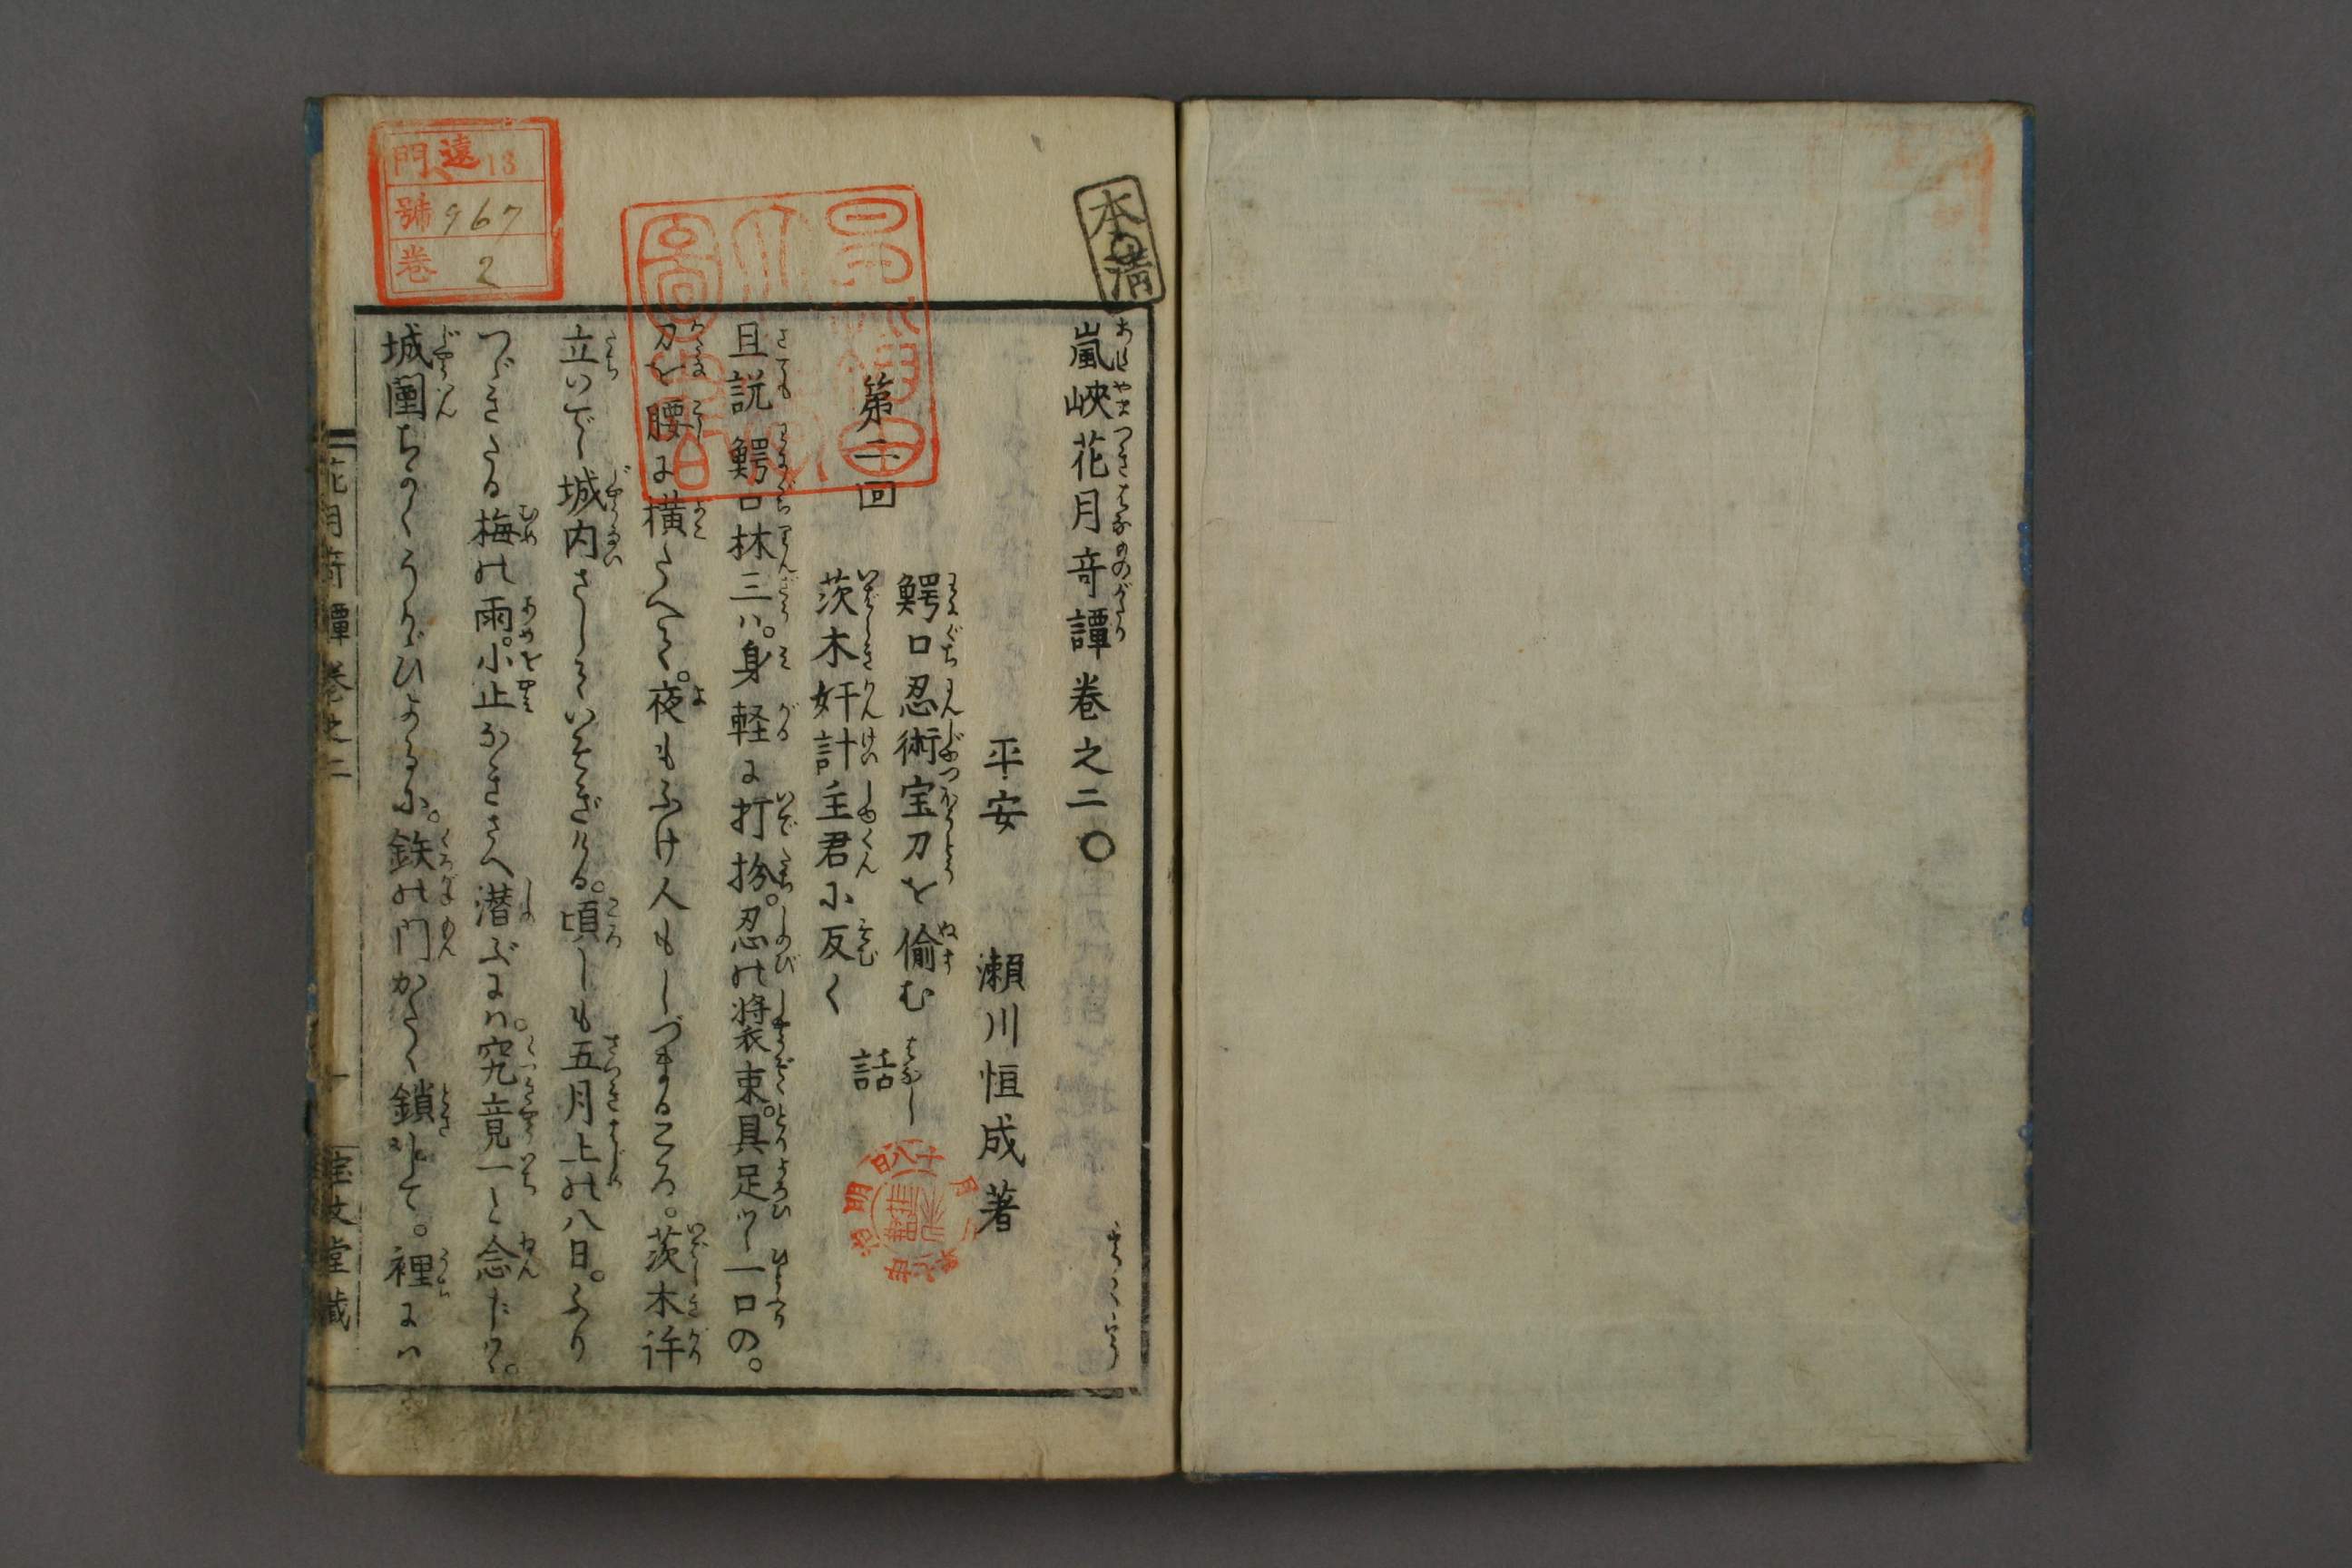 嵐峡花月奇譚巻之二〇
平安 瀬川恒成著
第二回
鰐口忍術宝刀を偸む
茨木奸計主君に反く
話
且説鰐口林三ハ。身軽に打扮。忍の装束。具足し一口の。
刀を腰に横たへて。夜もふけ人もしづまるころ。茨木許
立いで城内さしていそぎける。頃しも五月上の八日。ふり
つゞきたる梅の雨。小止なきさへ潜ぶにハ。究竟一と念じつゝ。
城闉ちかくうかゞひよるに。鉄の門かたく鎖して。裡にハ
花月奇譚巻之二
一
文堂蔵
本清
門 遠13
號 967
巻 2